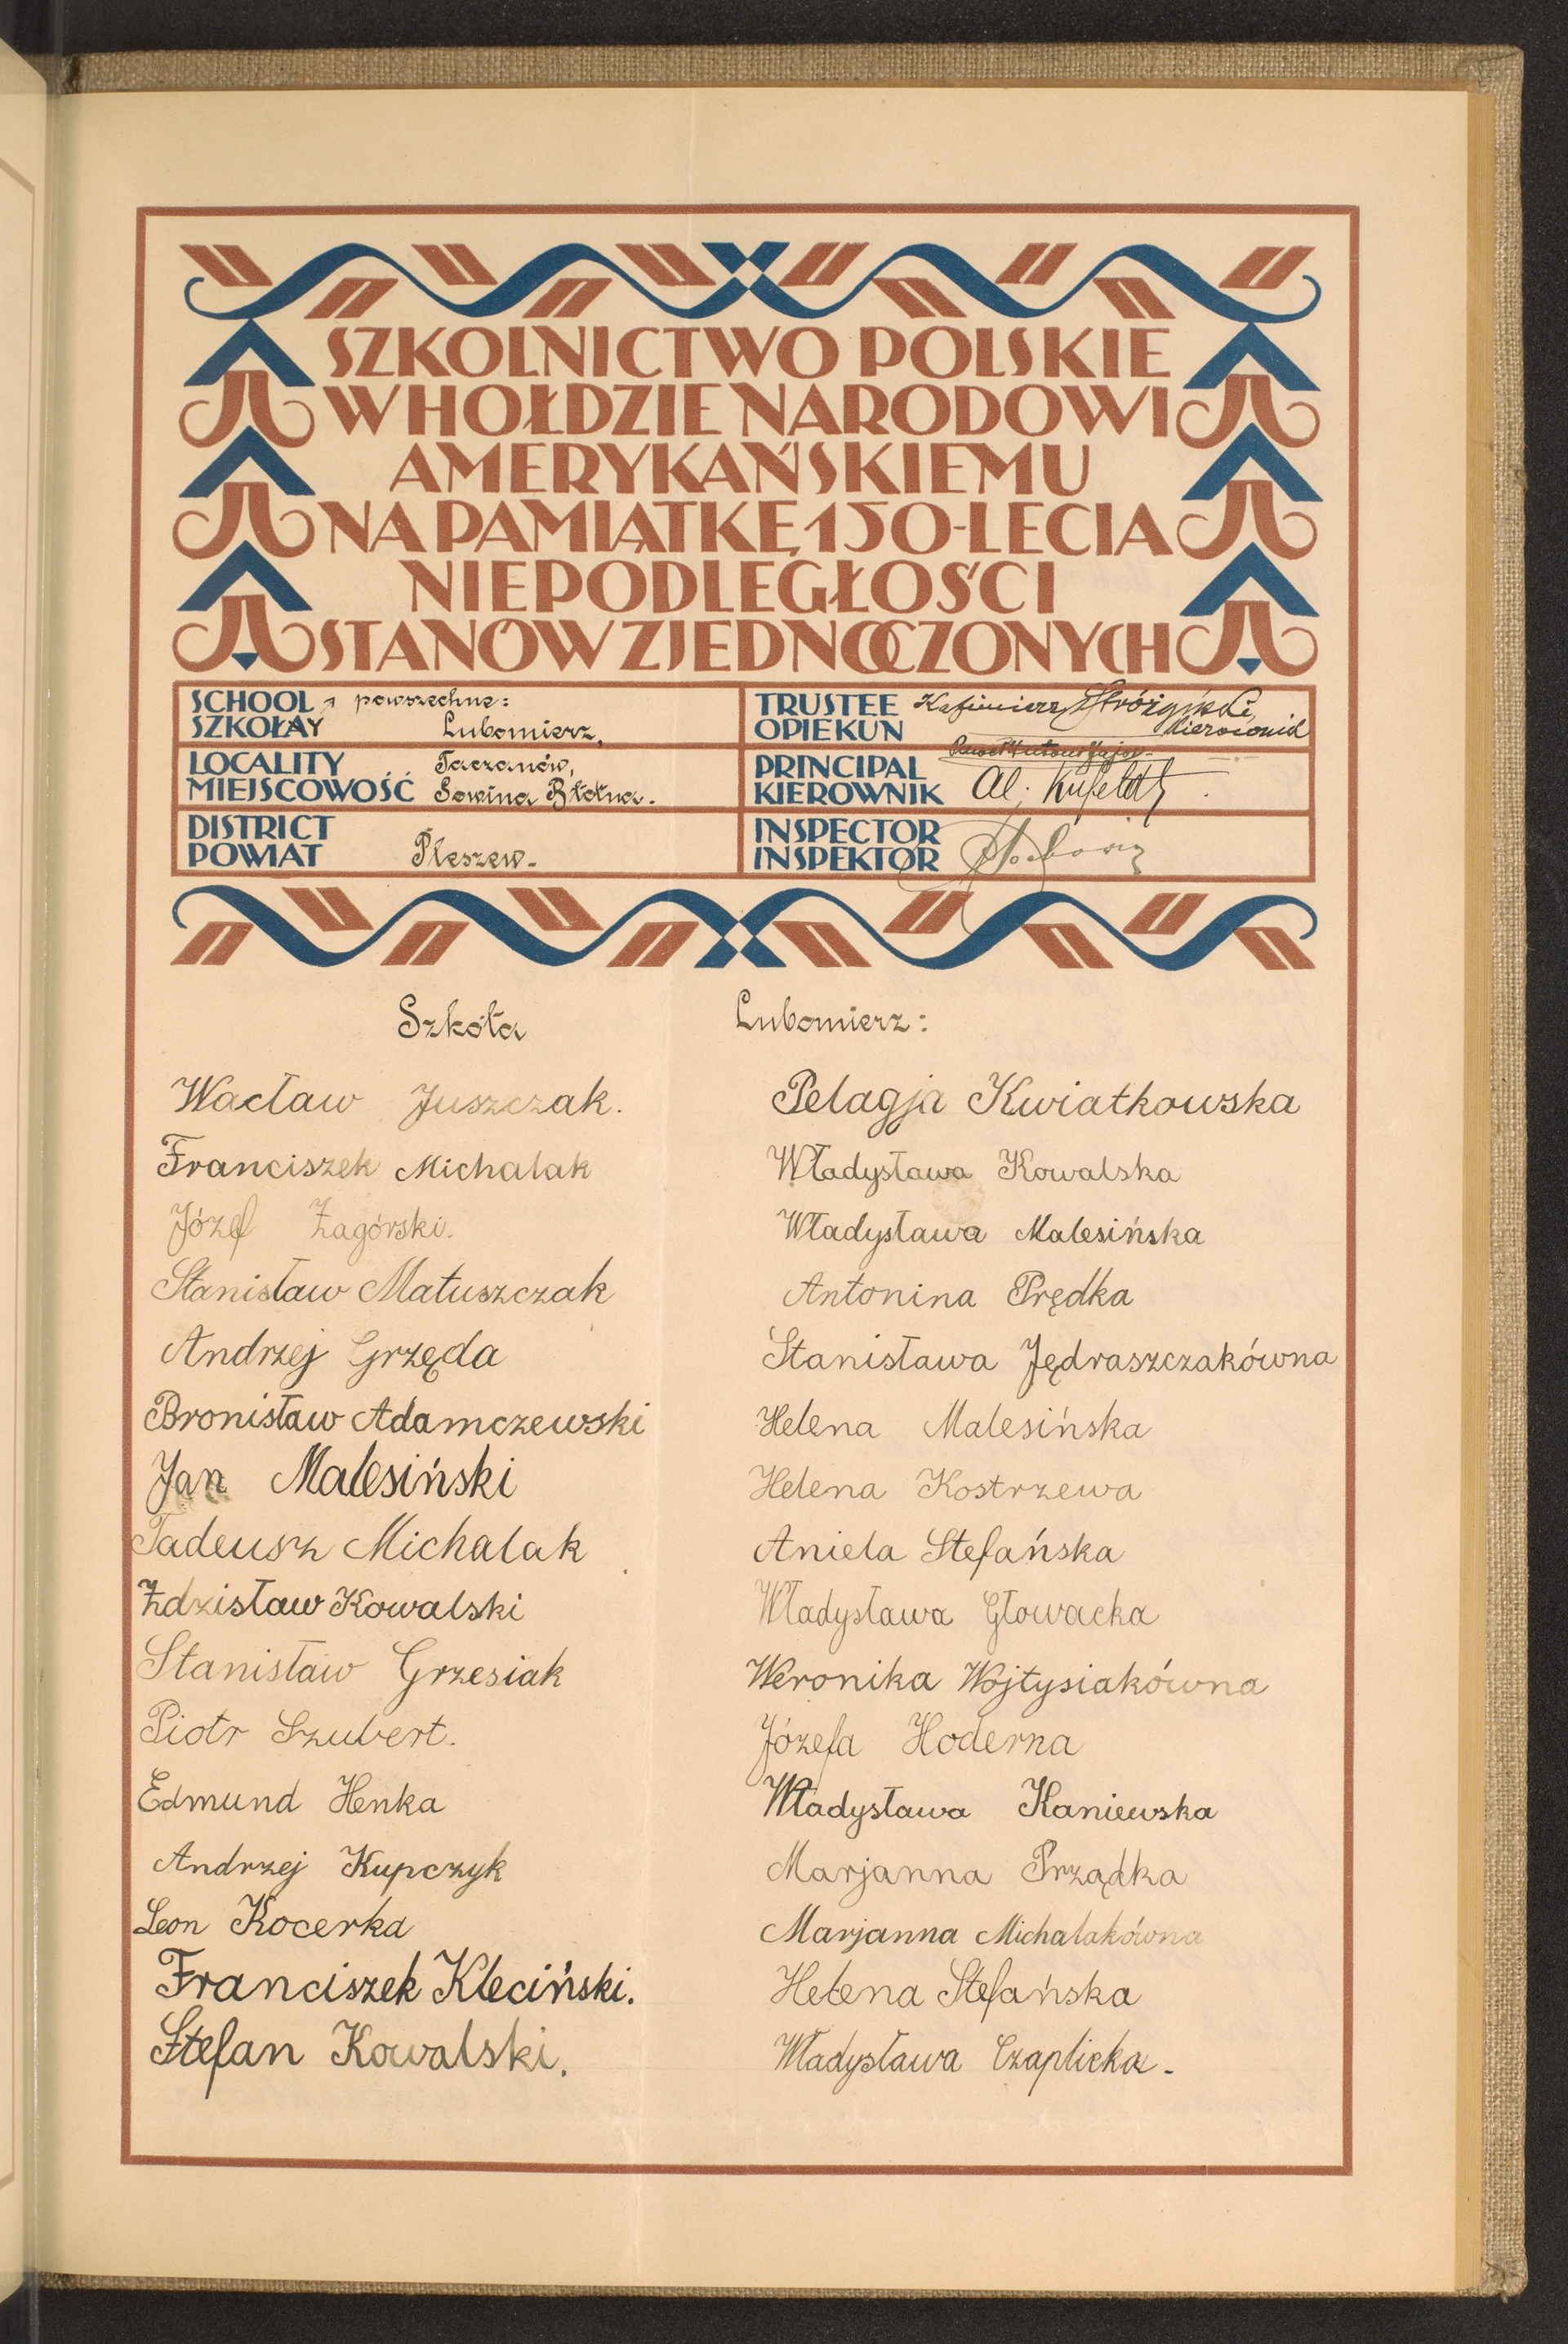 SZKOLNICTWO POLSKIE
W HOŁDZIE NARODOWI
AMERYKAŃSKIEMU
NA PAMIĄTKĘ 150-LECIA
NIEPODLEGŁOŚCI
STANÓW ZJEDNOCZONYCH
SCHOOL powszechne:
SZKOŁAY Lubomierz,
LOCALITY Taczanów,
MIEJSCOWOŚĆ Sowina Błotna.
DISTRICT
POWIAT Pleszew.
TRUSTEE Kazimierz Stróżyński,
OPIEKUN kierownik
PRINCIPAL
KIEROWNIK Al. Kufeldt
INSPECTOR
INSPEKTOR
Szkoła Lubomierz:
Wacław Juszczak.
Franciszek Michalak
Józef Zagórski.
Stanisław Matuszczak
Andrzej Grzęda
Bronisław Adamczewski
Jan Malesiński
Tadeusz Michalak
Zdzisław Kowalski
Stanisław Grzesiak
Piotr Szubert.
Edmund Henka
Andrzej Kupczyk
Leon Kocerka
Franciszek Kleciński.
Stefan Kowalski.
Pelagja Kwiatkowska
Władysława Kowalska
Władysława Malesińska
Antonina Prędka
Stanisława Jędraszczakówna
Helena Malesińska
Helena Kostrzewa
Aniela Stefańska
Władysława Głowacka
Weronika Wojtysiakówna
Józefa Hoderna
Władysława Kaniewska
Marjanna Prządka
Marjanna Michalakówna
Helena Stefańska
Władysława Czaplicka.